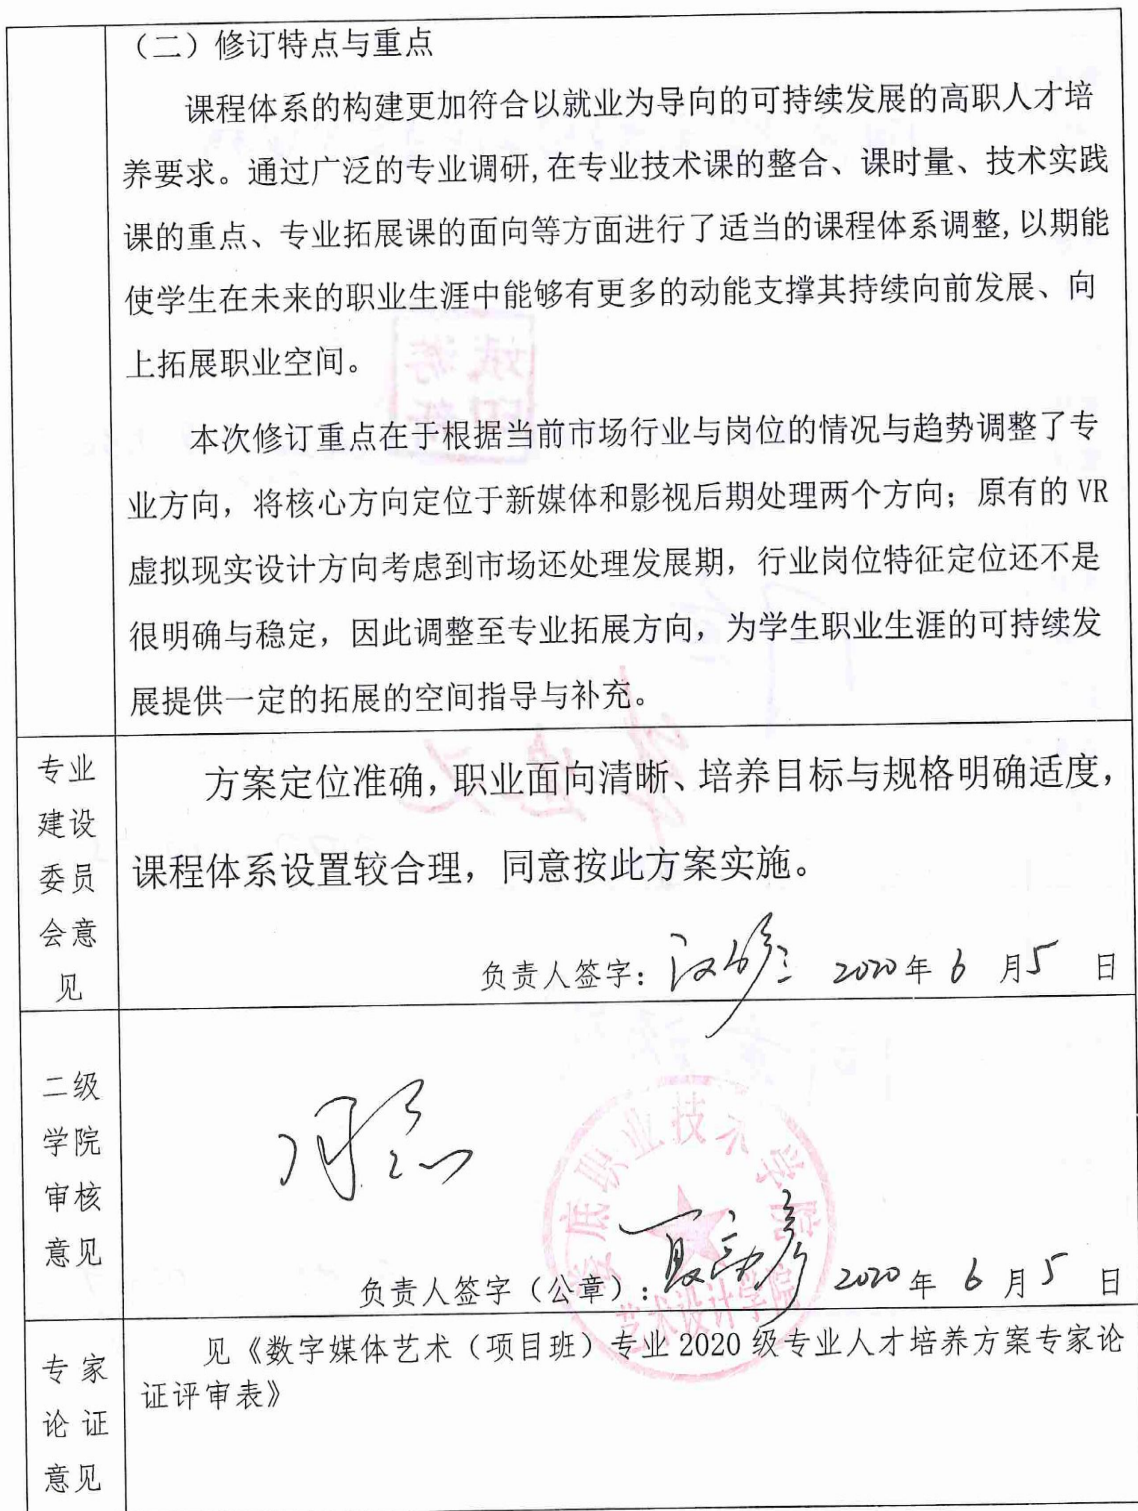 （二）修订特点与重点
课程体系的构建更加符合以就业为导向的可持续发展的高职人才培
养要求。通过广泛的专业调研,在专业技术课的整合、课时量、技术实践
课的重点、专业拓展课的面向等方面进行了适当的课程体系调整,以期能
使学生在未来的职业生涯中能够有更多的动能支撑其持续向前发展、向
上拓展职业空间。
本次修订重点在于根据当前市场行业与岗位的情况与趋势调整了专
业方向，将核心方向定位于新媒体和影视后期处理两个方向；原有的 VR
虚拟现实设计方向考虑到市场还处理发展期，行业岗位特征定位还不是
很明确与稳定，因此调整至专业拓展方向，为学生职业生涯的可持续发
展提供一定的拓展的空间指导与补充。
专业
建设
委员
会意
见
方案定位准确，职业面向清晰、培养目标与规格明确适度，
课程体系设置较合理，同意按此方案实施。
负责人签字： 2020年 6 月5 日
二级
学院
审核
意见
同意
娄底职业技术学院
艺术设计学院
负责人签字（公章）： 2020年 6 月5 日
专家
论证
意见
见《数字媒体艺术（项目班）专业 2020 级专业人才培养方案专家论
证评审表》